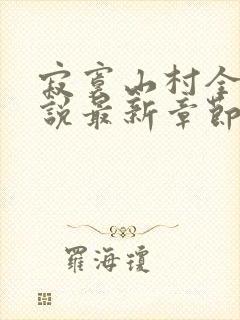 寂寞山村全
說最新章節
羅海瓊